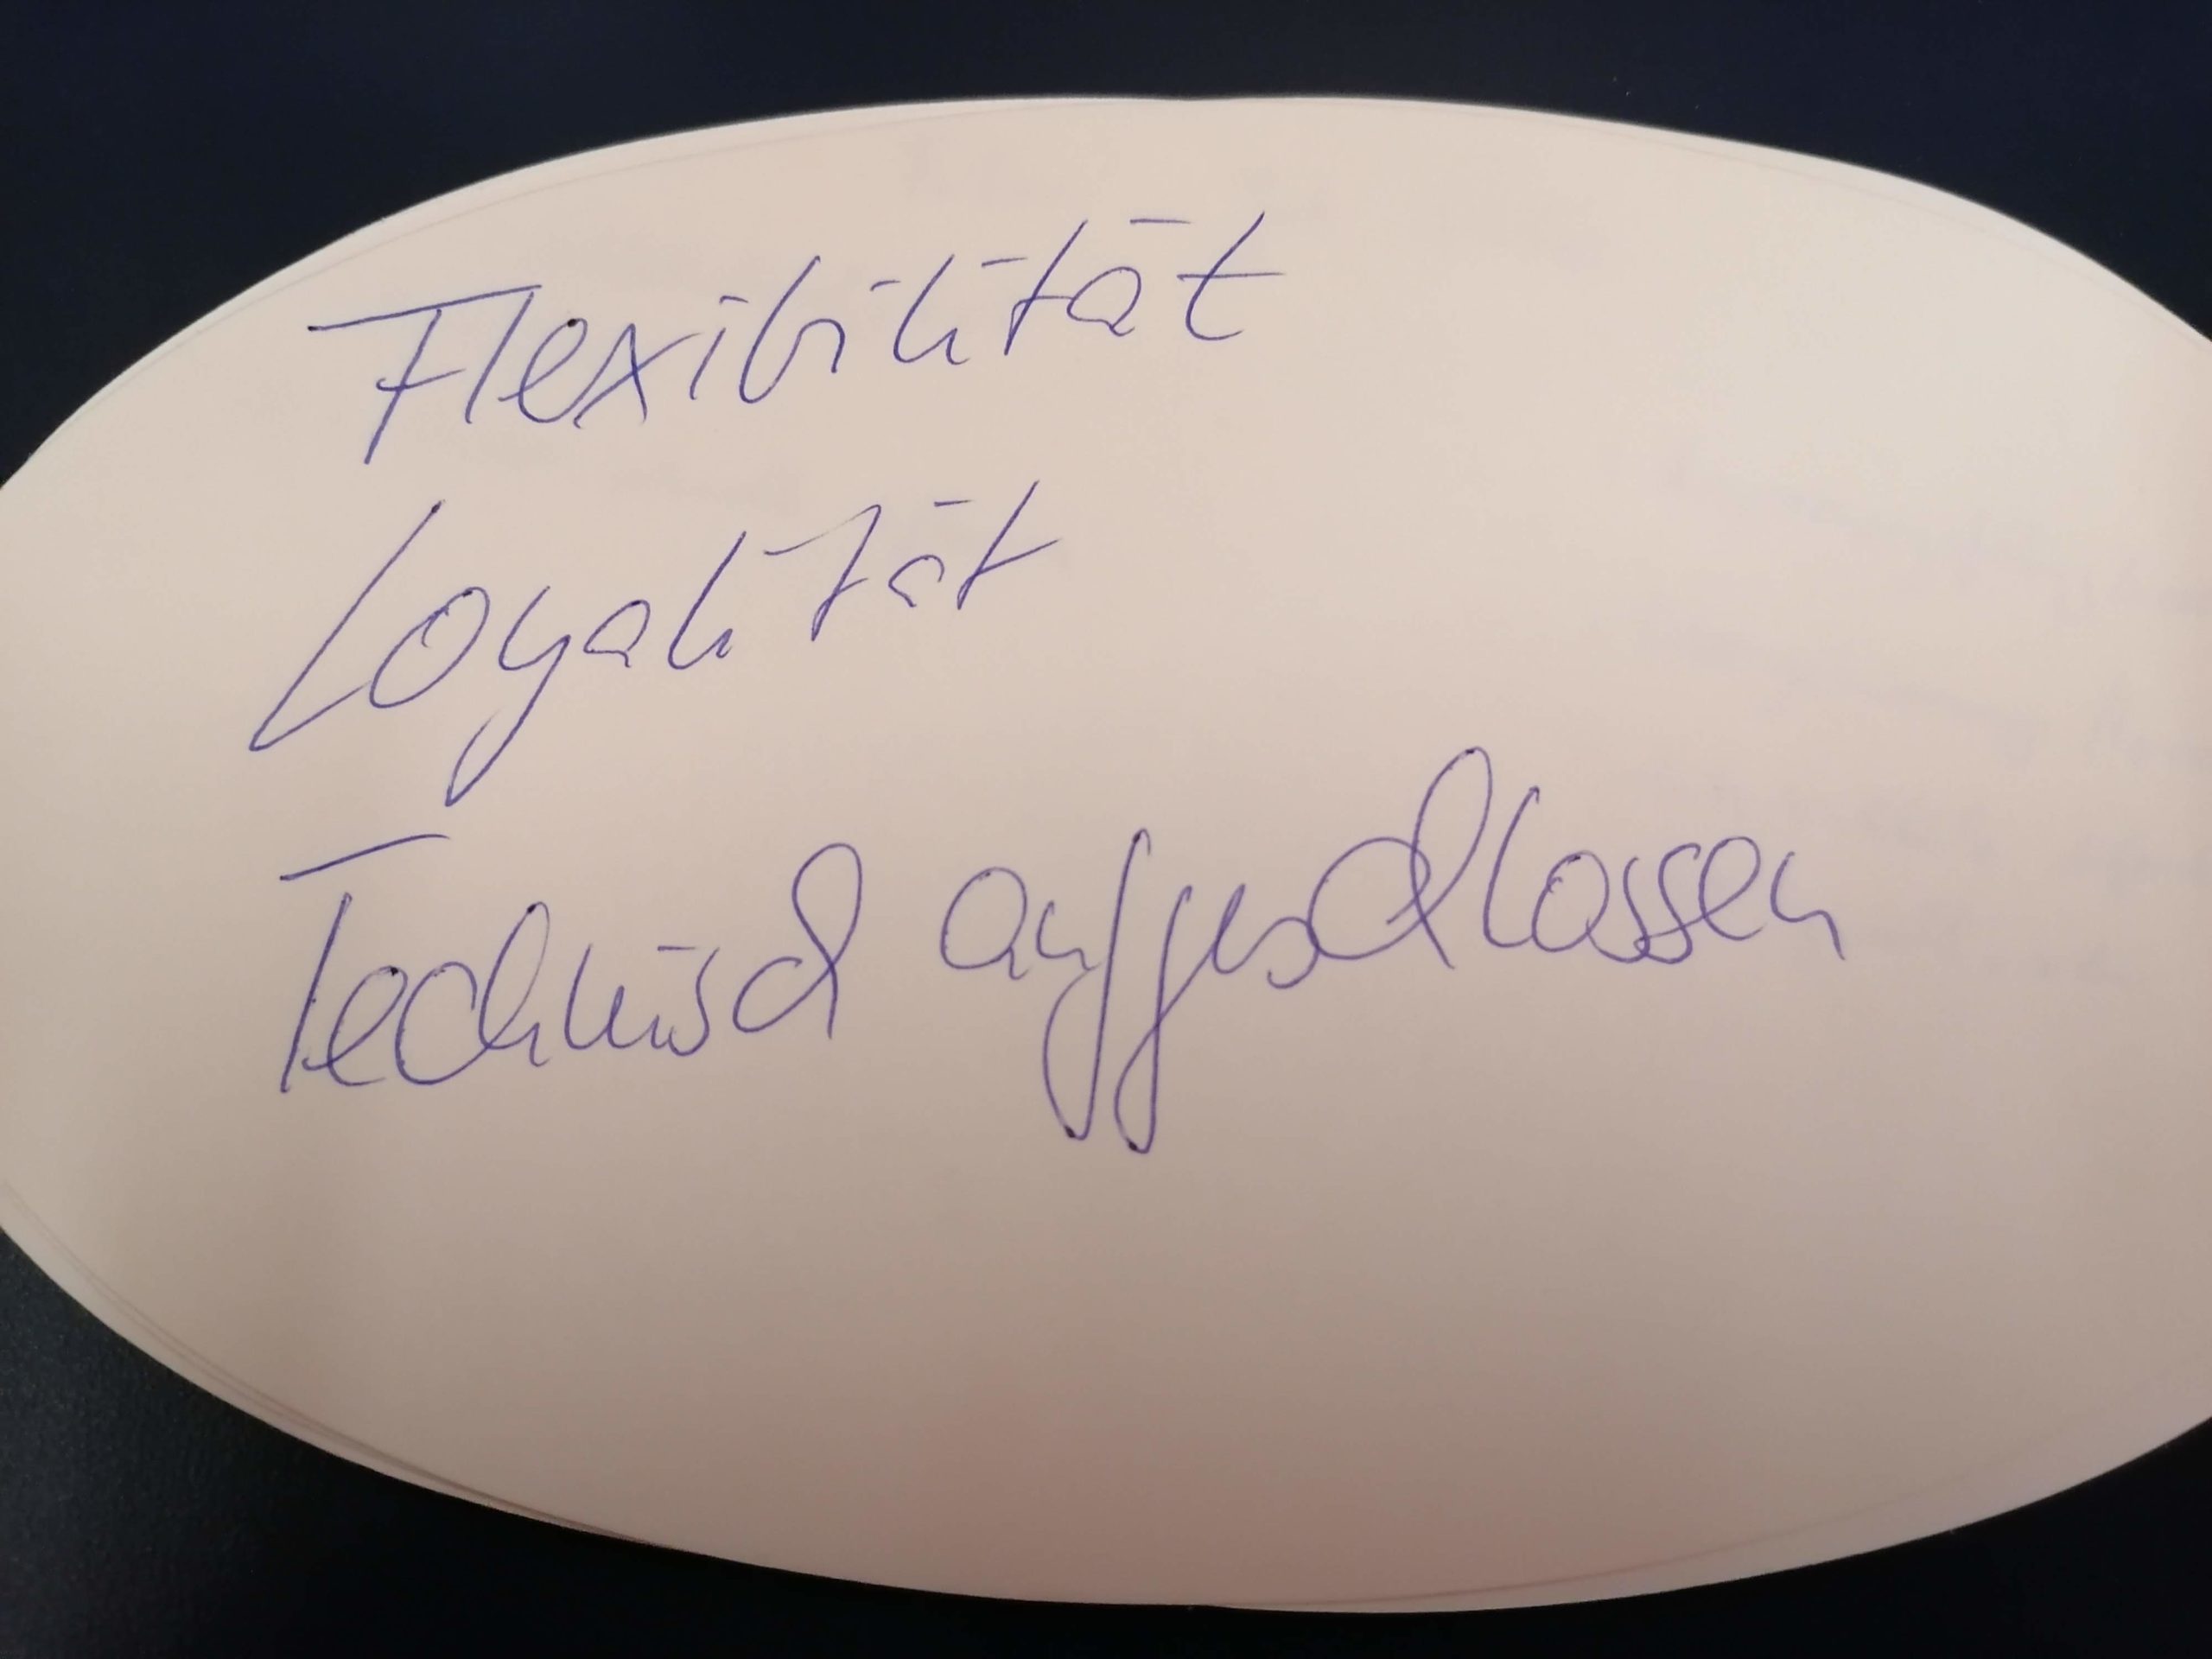 Flexibilität
Loyalität
Technisch aufgeschlossen